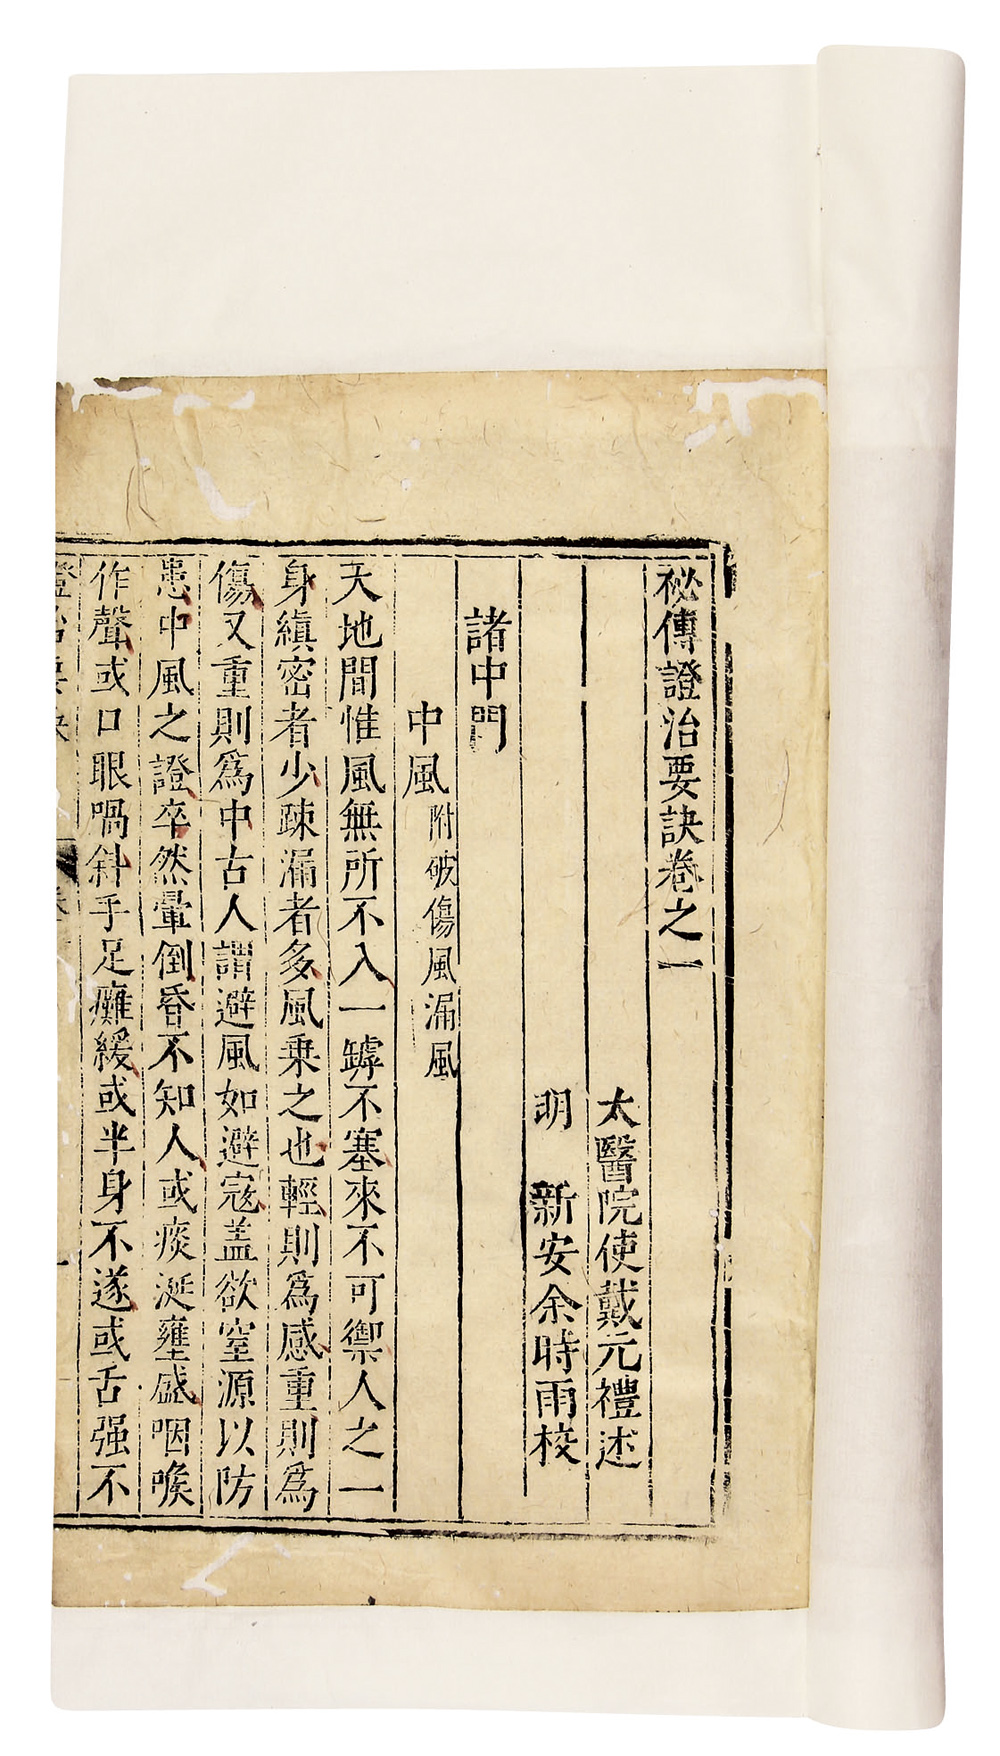 祕傳證治要訣卷之一
太醫院使戴元禮述
明　新安余時雨校
諸中門
中風附破傷風漏風
天地間惟風無所不入一罅不塞來不可禦人之一
身縝密者少踈漏者多風乗之也輕則爲感重則爲
傷又重則爲中古人謂避風如避寇盖欲窒源以防
患中風之證卒然暈倒昏不知人或痰涎壅盛咽喉
作聲或口眼喎斜手足癱緩或半身不遂或舌强不
證治要訣　卷一　一